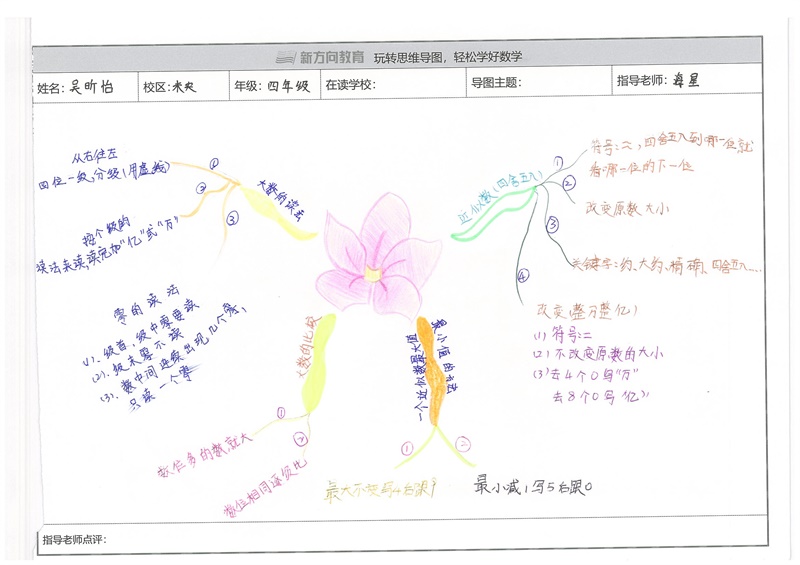 新方向教育 玩转思维导图，轻松学好数学
姓名：吴昕怡 校区：未央 年级：四年级 在读学校： 导图主题： 指导老师：海星
大数的读法
①
从右往左
四位一级，分级（用虚线）
②
③
按个级的
读法来读，读完加“亿”或“万”
零的读法
(1)、级首、级中零要读
(2)、级末零不读
(3)、数中间连续出现几个零，
只读一个零
近似数（四舍五入）
①
符号：≈，四舍五入到哪一位就
看哪一位的下一位
②
改变原数大小
③
关键字：约、大约、精确、四舍五入……
④
改变（整万整亿）
(1) 符号：=
(2) 不改变原数的大小
(3) 去4个0写“万”
去8个0写“亿”
大数的比较
①
数位多的数就大
②
数位相同逐位比
一个近似数最大值
最小值的方法
①
最大不变写4后跟9
②
最小减1写5后跟0
指导老师点评：